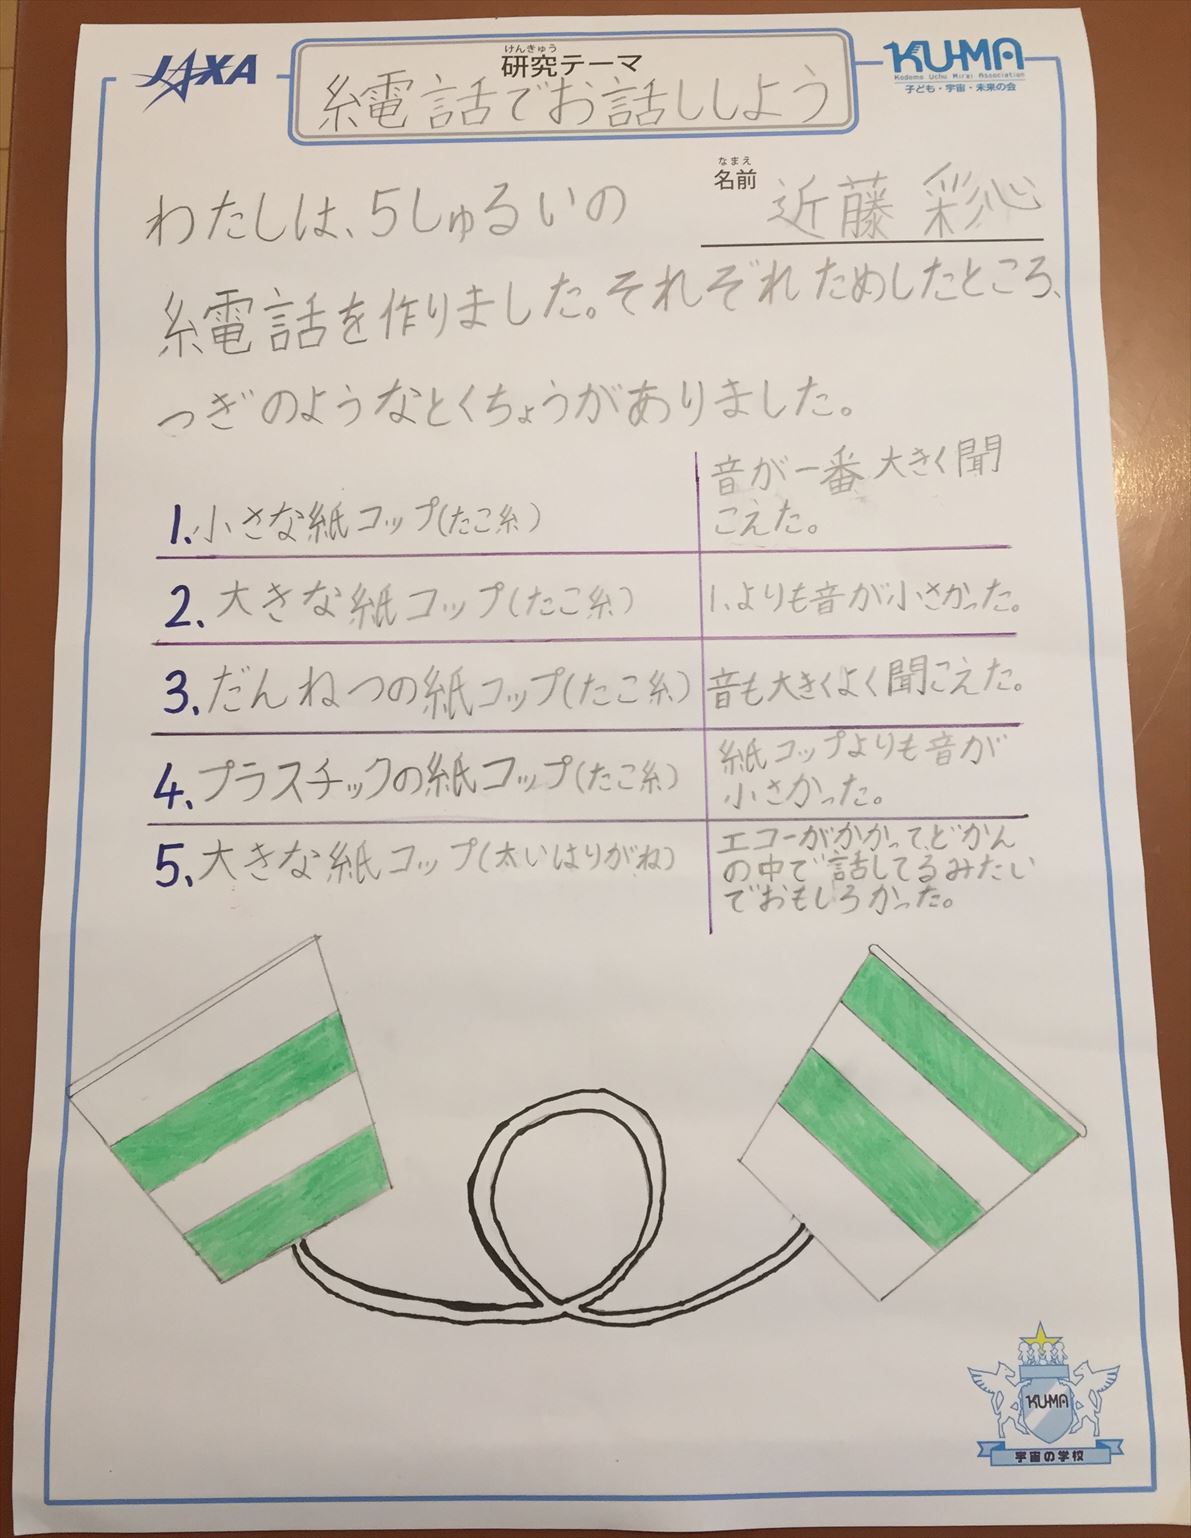 JAXA
けんきゅう
研究テーマ
糸電話でお話ししよう
KU-MA
Kodomo Uchu Mirai Association
子ども・宇宙・未来の会
なまえ
名前
近藤 彩心
わたしは、5しゅるいの
糸電話を作りました。それぞれためしたところ、
つぎのようなとくちょうがありました。
1.小さな紙コップ(たこ糸)
音が一番大きく聞
こえた。
2.大きな紙コップ(たこ糸)
1.よりも音が小さかった。
3.だんねつの紙コップ(たこ糸)
音も大きくよく聞こえた。
4.プラスチックの紙コップ(たこ糸)
紙コップよりも音が
小さかった。
5.大きな紙コップ(太いはりがね)
エコーがかかって、どかん
の中で話してるみたい
でおもしろかった。
KU-MA
宇宙の学校